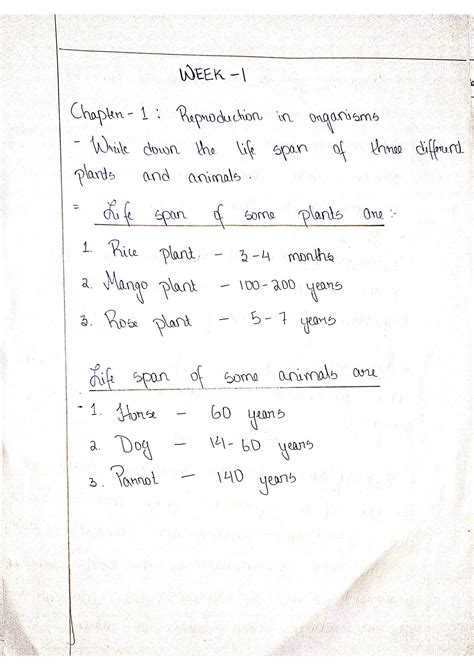 WEEK -1
Chapter- 1 : Reproduction in organisms
- Write down the life span of three different
plants and animals.
= Life span of some plants are :-
1. Rice plant - 3-4 months
2. Mango plant - 100-200 years
3. Rose plant - 5-7 years
Life span of some animals are
- 1. Horse - 60 years
2. Dog - 14-60 years
3. Parrot - 140 years